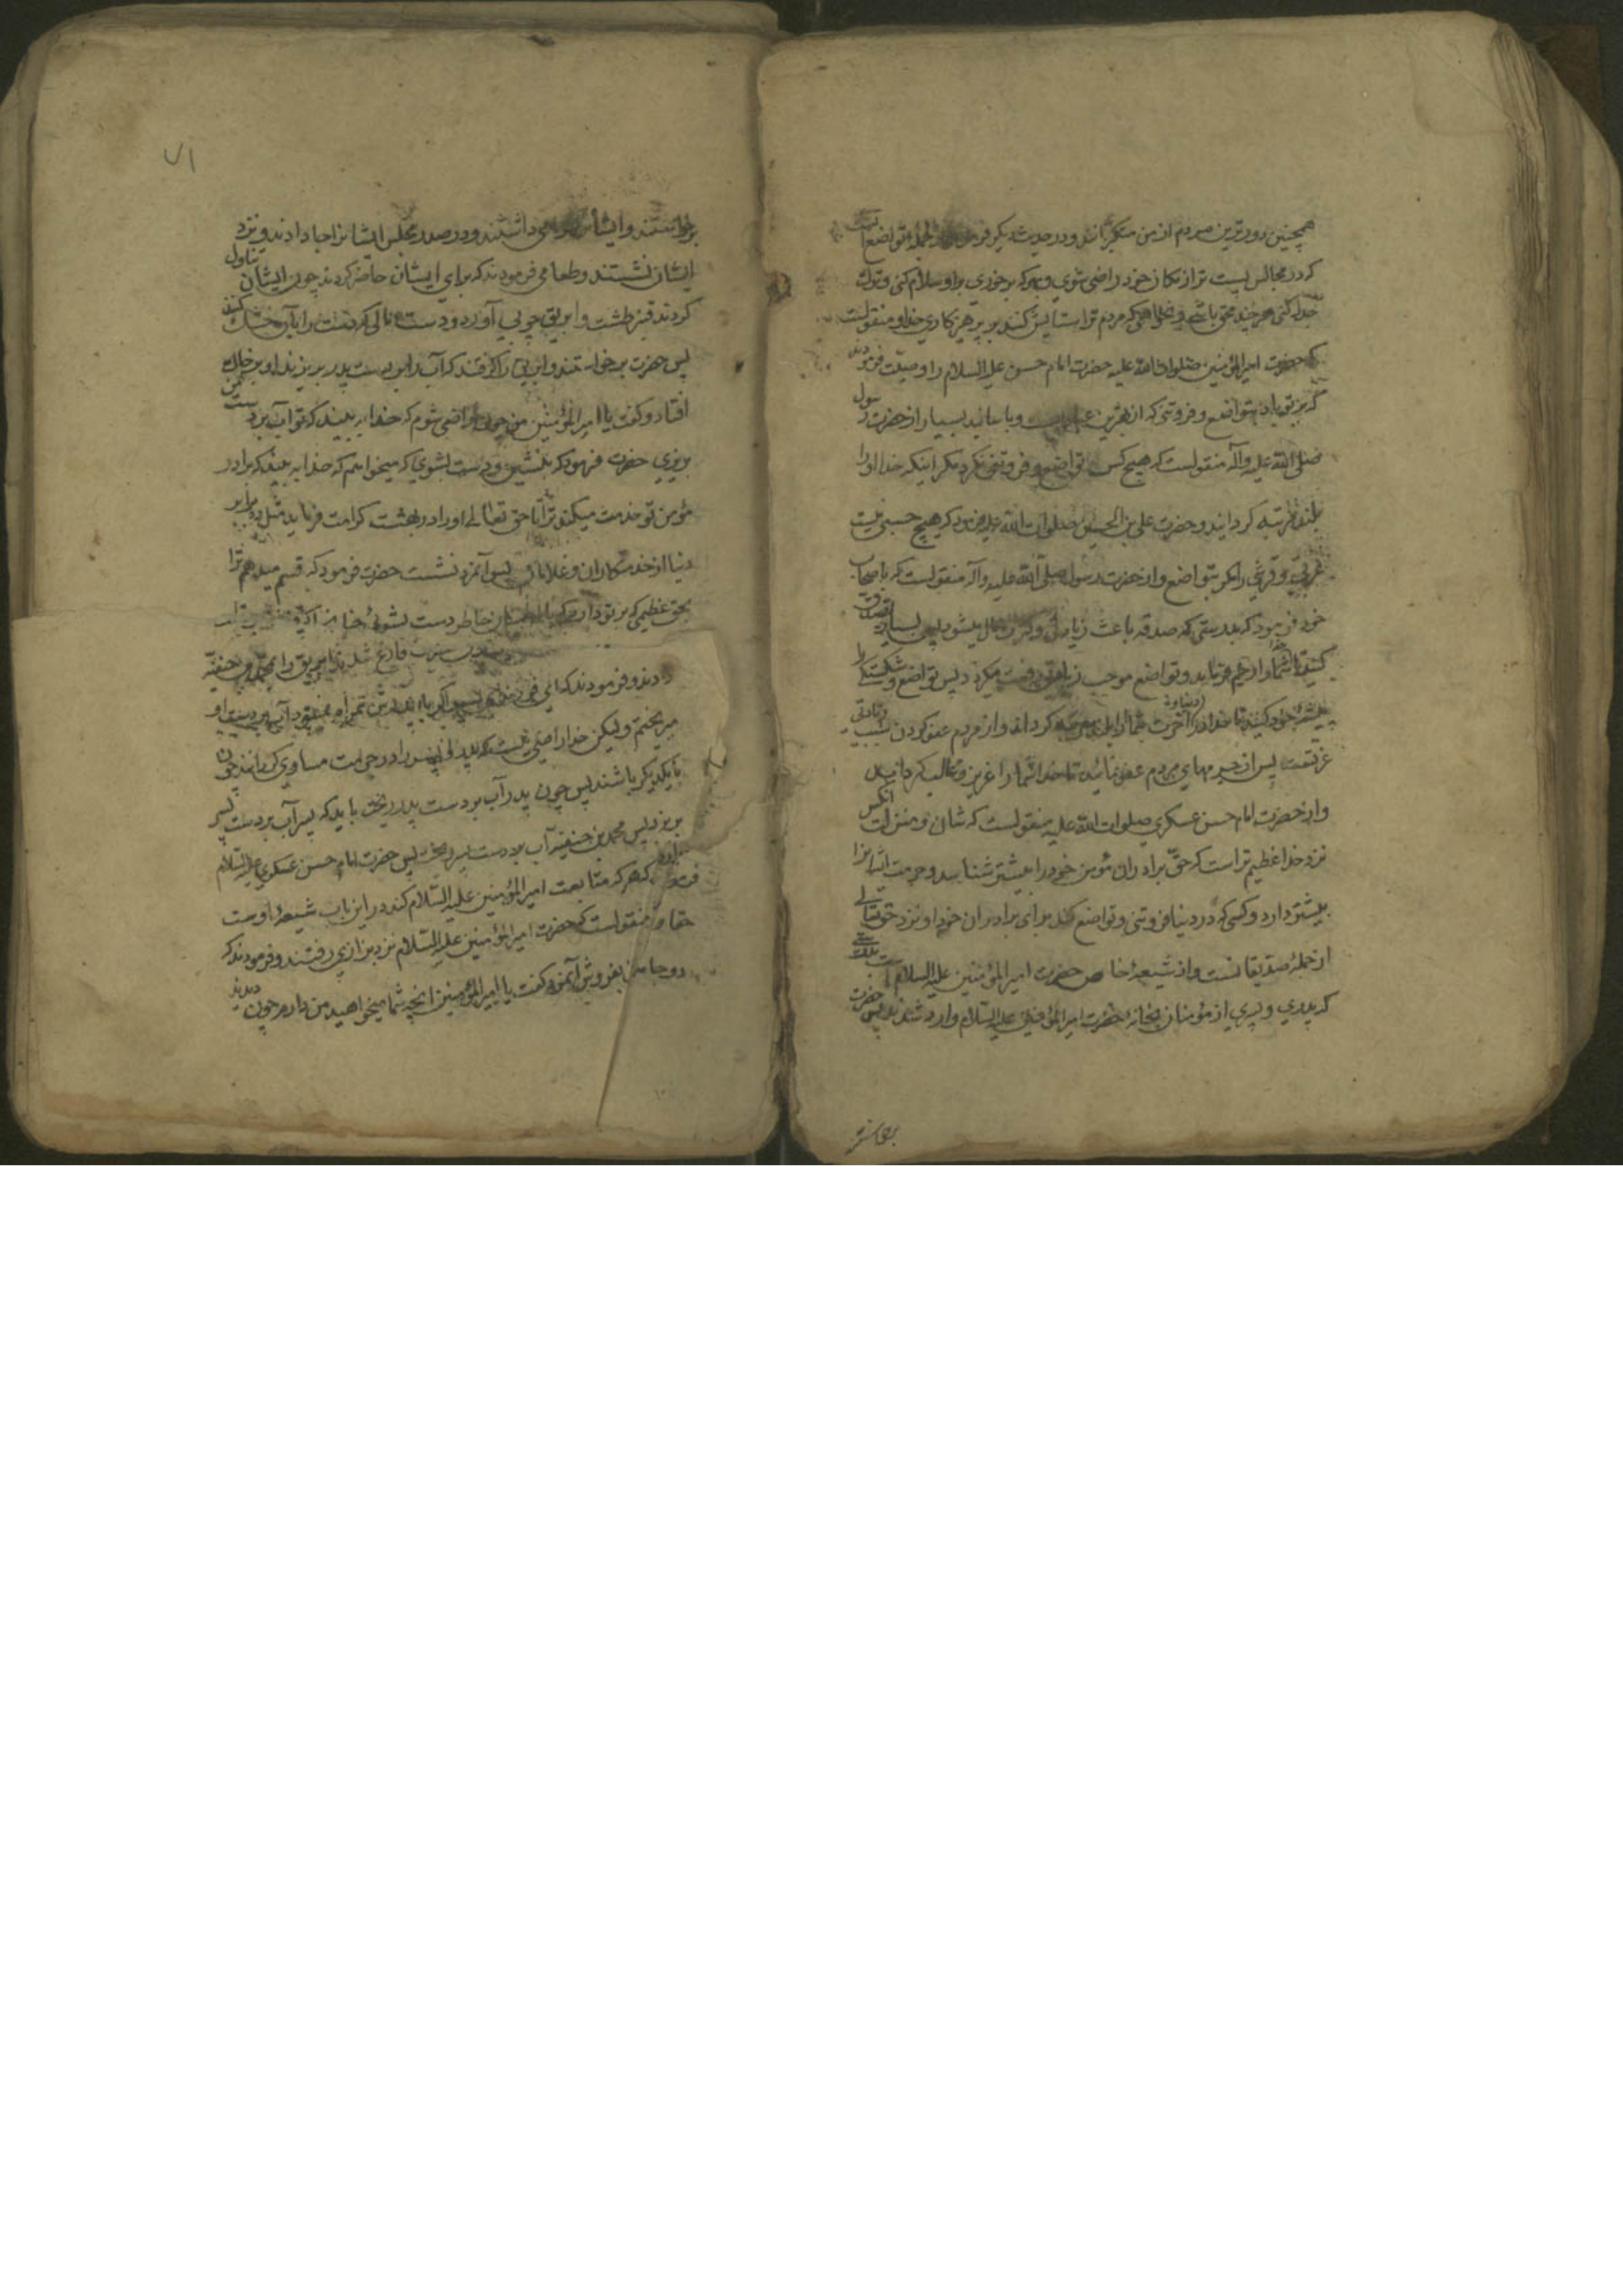 همچنین دورترین مردم از من متکبرانند و در حدیث دیگر فرمود از جمله تواضع است
که در مجالس پست تر از مکان خود راضی شوی و بهر که برخوری بر او سلام کنی و ترک
جدل کنی هر چند محق باشی و نخواهی که مردم ترا ستایش کنند بر پرهیزکاری خدا و منقولست
که حضرت امیرالمؤمنین صلوات الله علیه حضرت امام حسن علیه السلام را وصیت فرمودند
که بر تو باد بتواضع و فروتنی که از بهترین و باسانید بسیار از حضرت رسول
صلی الله علیه وآله منقولست که هیچ کس تواضع و فروتنی نکرد مگر اینکه خدا او را
بلند مرتبه گردانید و حضرت علی بن الحسین صلوات الله علیه فرمود که هیچ حسبی نیست
عربی و قرشی را مگر بتواضع و از حضرت رسول صلی الله علیه وآله منقولست که باصحاب
خود فرمود که بدرستی که صدقه باعث زیادتی و کثرت مال میشود پس بسیار تصدق
کنید تا خدا شما را رحم فرماید و تواضع موجب زیادتی رفعت میگردد پس تواضع و شکستگی را
پیشه خود کنید تا خدا در دنیا و آخرت شما را بلند مرتبه گرداند و از مردم عفو کردن سبب زیادتی
عزتست پس از جرمهای مردم عفو نمائید تا خدا شما را عزیز و غالب گرداند
و از حضرت امام حسن عسکری صلوات الله علیه منقولست که شان و منزلت آنکس
نزد خدا عظیم تر است که حق برادران مؤمن خود را بیشتر شناسد و حرمت ایشانرا
بیشتر دارد و کسی که در دنیا فروتنی و تواضع کند برای برادران خود او نزد حقتعالی
از جمله صدیقانست و از شیعه خاص حضرت امیرالمؤمنین علیه السلام است بدرستی
که پدری و پسری از مؤمنان بخانه حضرت امیرالمؤمنین علیه السلام وارد شدند پس حضرت
برخاستند
۷۱
برخاستند و ایشانرا گرامی داشتند و در صدر مجلس ایشانرا جا دادند و نزد
ایشان نشستند و طعامی فرمودند که برای ایشان حاضر کردند چون ایشان تناول
کردند قنبر طشت و ابریق چوبی آورد و دستمالی که دست را بآن خشک کنند
پس حضرت برخواستند و ابریق را گرفتند که آب را بر دست پدر بریزند او بر خاک
افتاد و گفت یا امیرالمؤمنین من چون راضی شوم که خدا به بیند که تو آب بر دست من
بریزی حضرت فرمود که بنشین و دست بشوی که میخواهم که خدا به بیند که برادر
مؤمن تو خدمت میکند ترا تا حق تعالی او را در بهشت کرامت فرماید مثل ده برابر
دنیا از خدمتکاران و غلامان پس آنمرد نشست حضرت فرمود که قسم میدهم ترا
بحق عظیمی که بر تو دارم که باطمینان خاطر دست بشوئی چنانکه اگر قنبر
فارغ شدند ابریق را بمحمد بن حنفیه
دادند و فرمودند که ای فرزند اگر این پسر با پدرش همراه نمیبود آب بر دست او
میریختم و لیکن خدا راضی نیست که پدر و پسر را در حرمت مساوی گردانند چون
با یکدیگر باشند پس چون پدر آب بر دست پدر ریخت باید که پسر آب بر دست پسر
بریزد پس محمد بن حنفیه آب بر دست پسر ریخت پس حضرت امام حسن عسکری علیه السلام
فرمود که هر که متابعت امیرالمؤمنین علیه السلام کند در این باب شیعه اوست
حقا و منقولست که حضرت امیرالمؤمنین علیه السلام نزد بزازی رفتند و فرمودند که
دو جامه بمن بفروش آنمرد گفت یا امیرالمؤمنین آنچه شما میخواهید من دارم چون دیدند